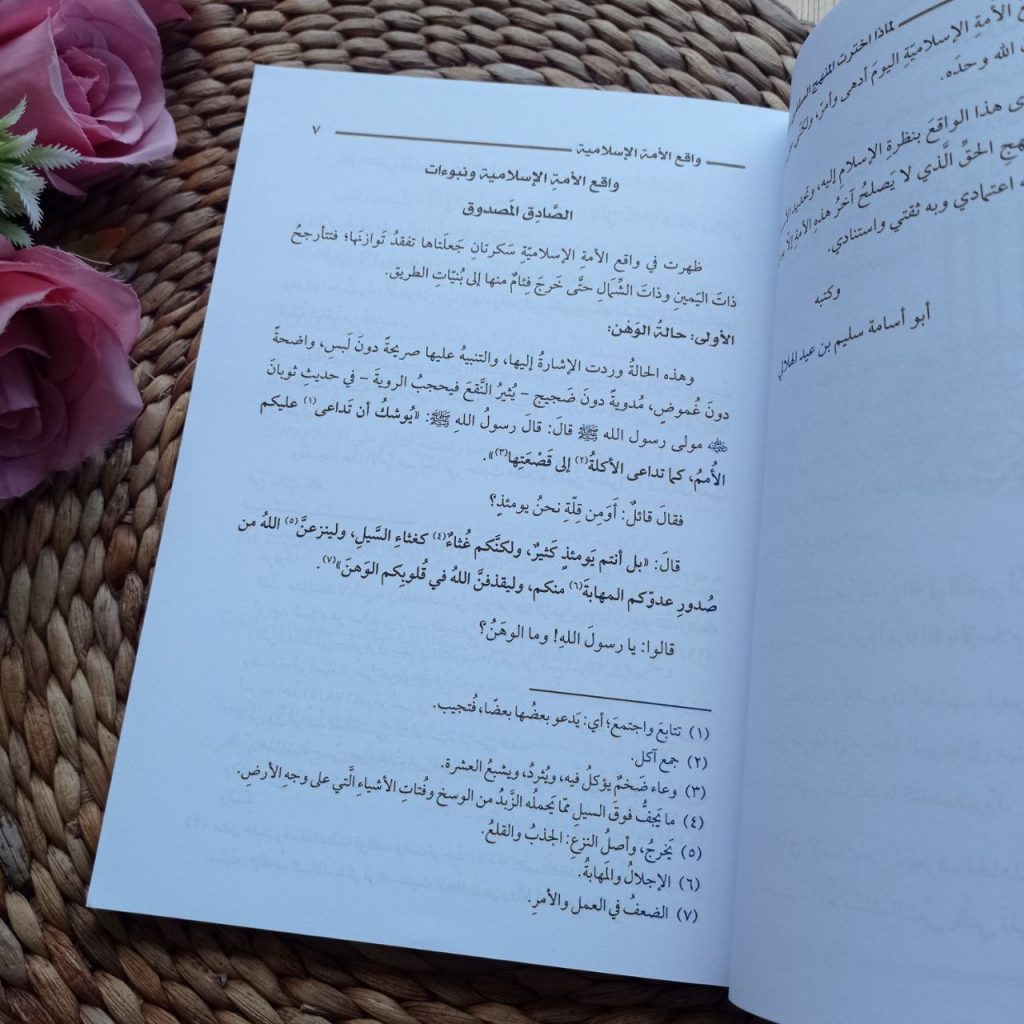 لماذا اخترت المنهج
الأمةِ الإسلاميّةِ اليومَ أدهى وأمرّ، ولكن
الله وحدَه.
هذا الواقعَ بنظرةِ الإسلام إليه، وتحديد
الحقِّ الَّذي لا يَصلحُ آخرُ هذه الأمةِ إلا
اعتمادي وبه ثقتي واستنادي.
وكتبه
أبو أسامة سليم بن عيد الهلالي
واقع الأمة الإسلامية ٧
واقع الأمةِ الإسلامية ونبوءات
الصَّادِق المَصدوق
ظهرت في واقع الأمةِ الإسلاميّةِ سَكرتانِ جَعلَتاها تفقدُ تَوازنَها؛ فتتأرجحُ
ذاتَ اليَمينِ وذاتَ الشِّمالِ حتَّى خَرجَ فِئامٌ منها إلى بُنيَّاتِ الطريق.
الأولى: حالةُ الوَهْن:
وهذه الحالةُ وردت الإشارةُ إليها، والتنبيهُ عليها صريحةً دونَ لَبسٍ، واضحةً
دونَ غُموضٍ، مُدويةً دونَ ضَجيج - يُثيرُ النَّقعَ فيحجبُ الرويةَ - في حديثِ ثوبانَ
مولى رسول الله ﷺ قالَ: قالَ رسولُ اللهِ ﷺ: «يُوشكُ أن تَداعى(١) عليكم
الأُممُ، كما تداعى الأكلةُ(٢) إلى قَصْعَتِها(٣)».
فقالَ قائلٌ: أَوَمِن قِلّةٍ نحنُ يومئذٍ؟
قالَ: «بل أنتم يَومئذٍ كَثيرٌ، ولكنَّكم غُثاءٌ(٤) كغثاءِ السَّيلِ، ولينزعنَّ(٥) اللهُ من
صُدورِ عدوّكم المهابةَ(٦) منكم، وليقذفنَّ اللهُ في قُلوبِكم الوَهنَ»(٧).
قالوا: يا رسولَ اللهِ! وما الوهَنُ؟
(١) تتابعَ واجتمعَ؛ أي: يَدعو بعضُها بعضًا، فُتجيب.
(٢) جمع آكل.
(٣) وعاء ضَخمٌ يؤكلُ فيه، ويُثردُ، ويشبعُ العشرة.
(٤) ما يَجفُّ فوقَ السيلِ ممّا يَحملُه الزَّبدُ من الوسخِ وفُتاتِ الأشياءِ الَّتي على وجهِ الأرضِ.
(٥) يَخرجُ، وأصلُ النزعِ: الجذبُ والقلعُ.
(٦) الإجلالُ والمَهابةُ.
(٧) الضعفُ في العمل والأمرِ.